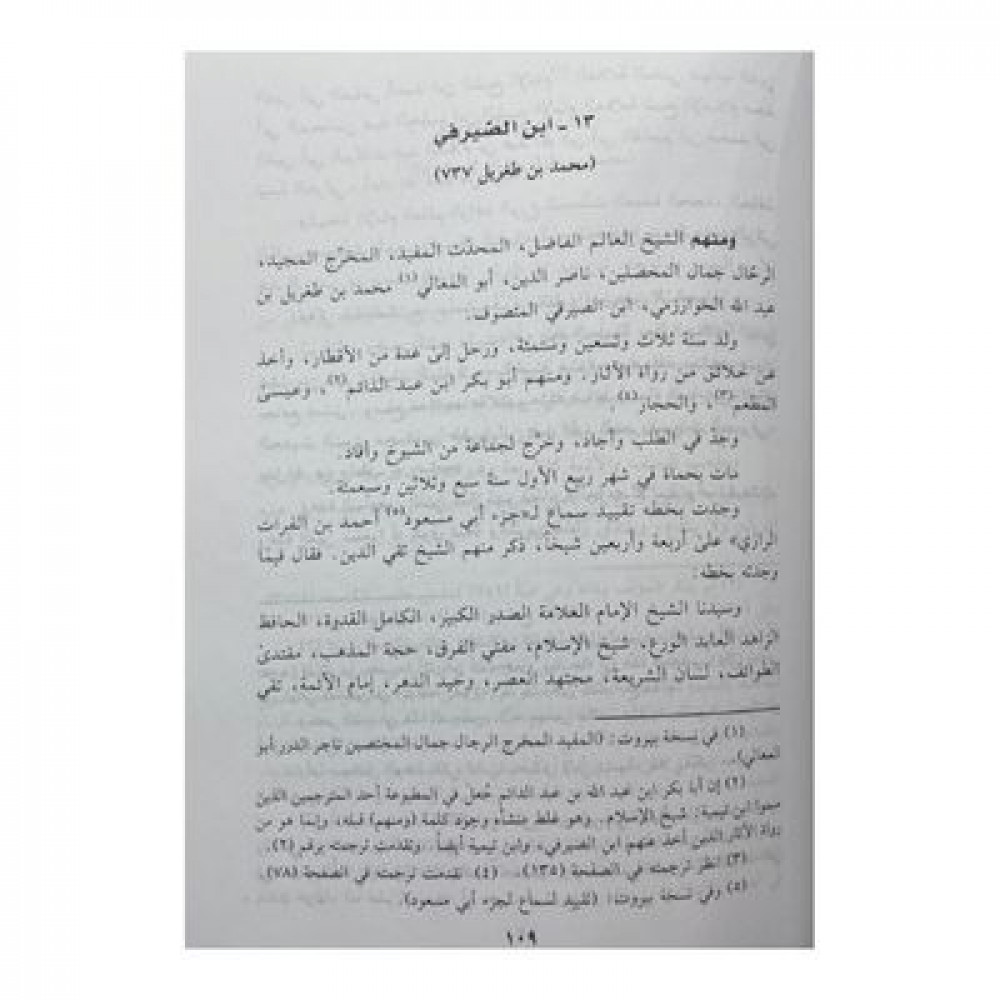 ١٣ - ابن الصّيرفي
(محمد بن طغريل ٧٣٧)
ومنهم الشيخ العالم الفاضل، المحدّث المفيد، المخرّج المجيد،
الرحّال جمال المحصلين، ناصر الدين، أبو المعالي(١) محمد بن طغريل بن
عبد الله الخوارزمي، ابن الصيرفي المتصوف.
ولد سنة ثلاث وتسعين وستمئة، ورحل إلى عدة من الأقطار، وأخذ
عن خلائق من رواة الآثار. ومنهم أبو بكر ابن عبد الدائم(٢)، وعيسى
المطعم(٣)، والحجار(٤).
وجدّ في الطلب وأجاد، وخرّج لجماعة من الشيوخ وأفاد.
مات بحماة في شهر ربيع الأول سنة سبع وثلاثين وسبعمئة.
وجدت بخطه تقييد سماع لـ«جزء أبي مسعود(٥) أحمد بن الفرات
الرازي» على أربعة وأربعين شيخاً، ذكر منهم الشيخ تقي الدين. فقال فيما
وجدته بخطه:
وسيدنا الشيخ الإمام العلامة الصدر الكبير، الكامل القدوة، الحافظ
الزاهد العابد الورع، شيخ الإسلام، مفتي الفرق، حجة المذهب، مقتدى
الطوائف، لسان الشريعة، مجتهد العصر، وحيد الدهر، إمام الأئمة، تقي
(١) في نسخة بيروت: (المفيد المخرج الرجال جمال المختصين تاجر الدرر أبو
المعالي).
(٢) إن أبا بكر ابن عبد الله بن عبد الدائم جُعل في المطبوعة أحد المترجمين الذين
سموا ابن تيمية: شيخ الإسلام. وهو غلط منشأه وجود كلمة (ومنهم) قبله، وإنما هو من
رواة الآثار الذين أخذ عنهم ابن الصيرفي، وابن تيمية أيضاً. وتقدمت ترجمته برقم (٢).
(٣) انظر ترجمته في الصفحة (١٣٥). (٤) تقدمت ترجمته في الصفحة (٧٨).
(٥) وفي نسخة بيروت: (تقييد لسماع لجزء أبي مسعود).
١٠٩